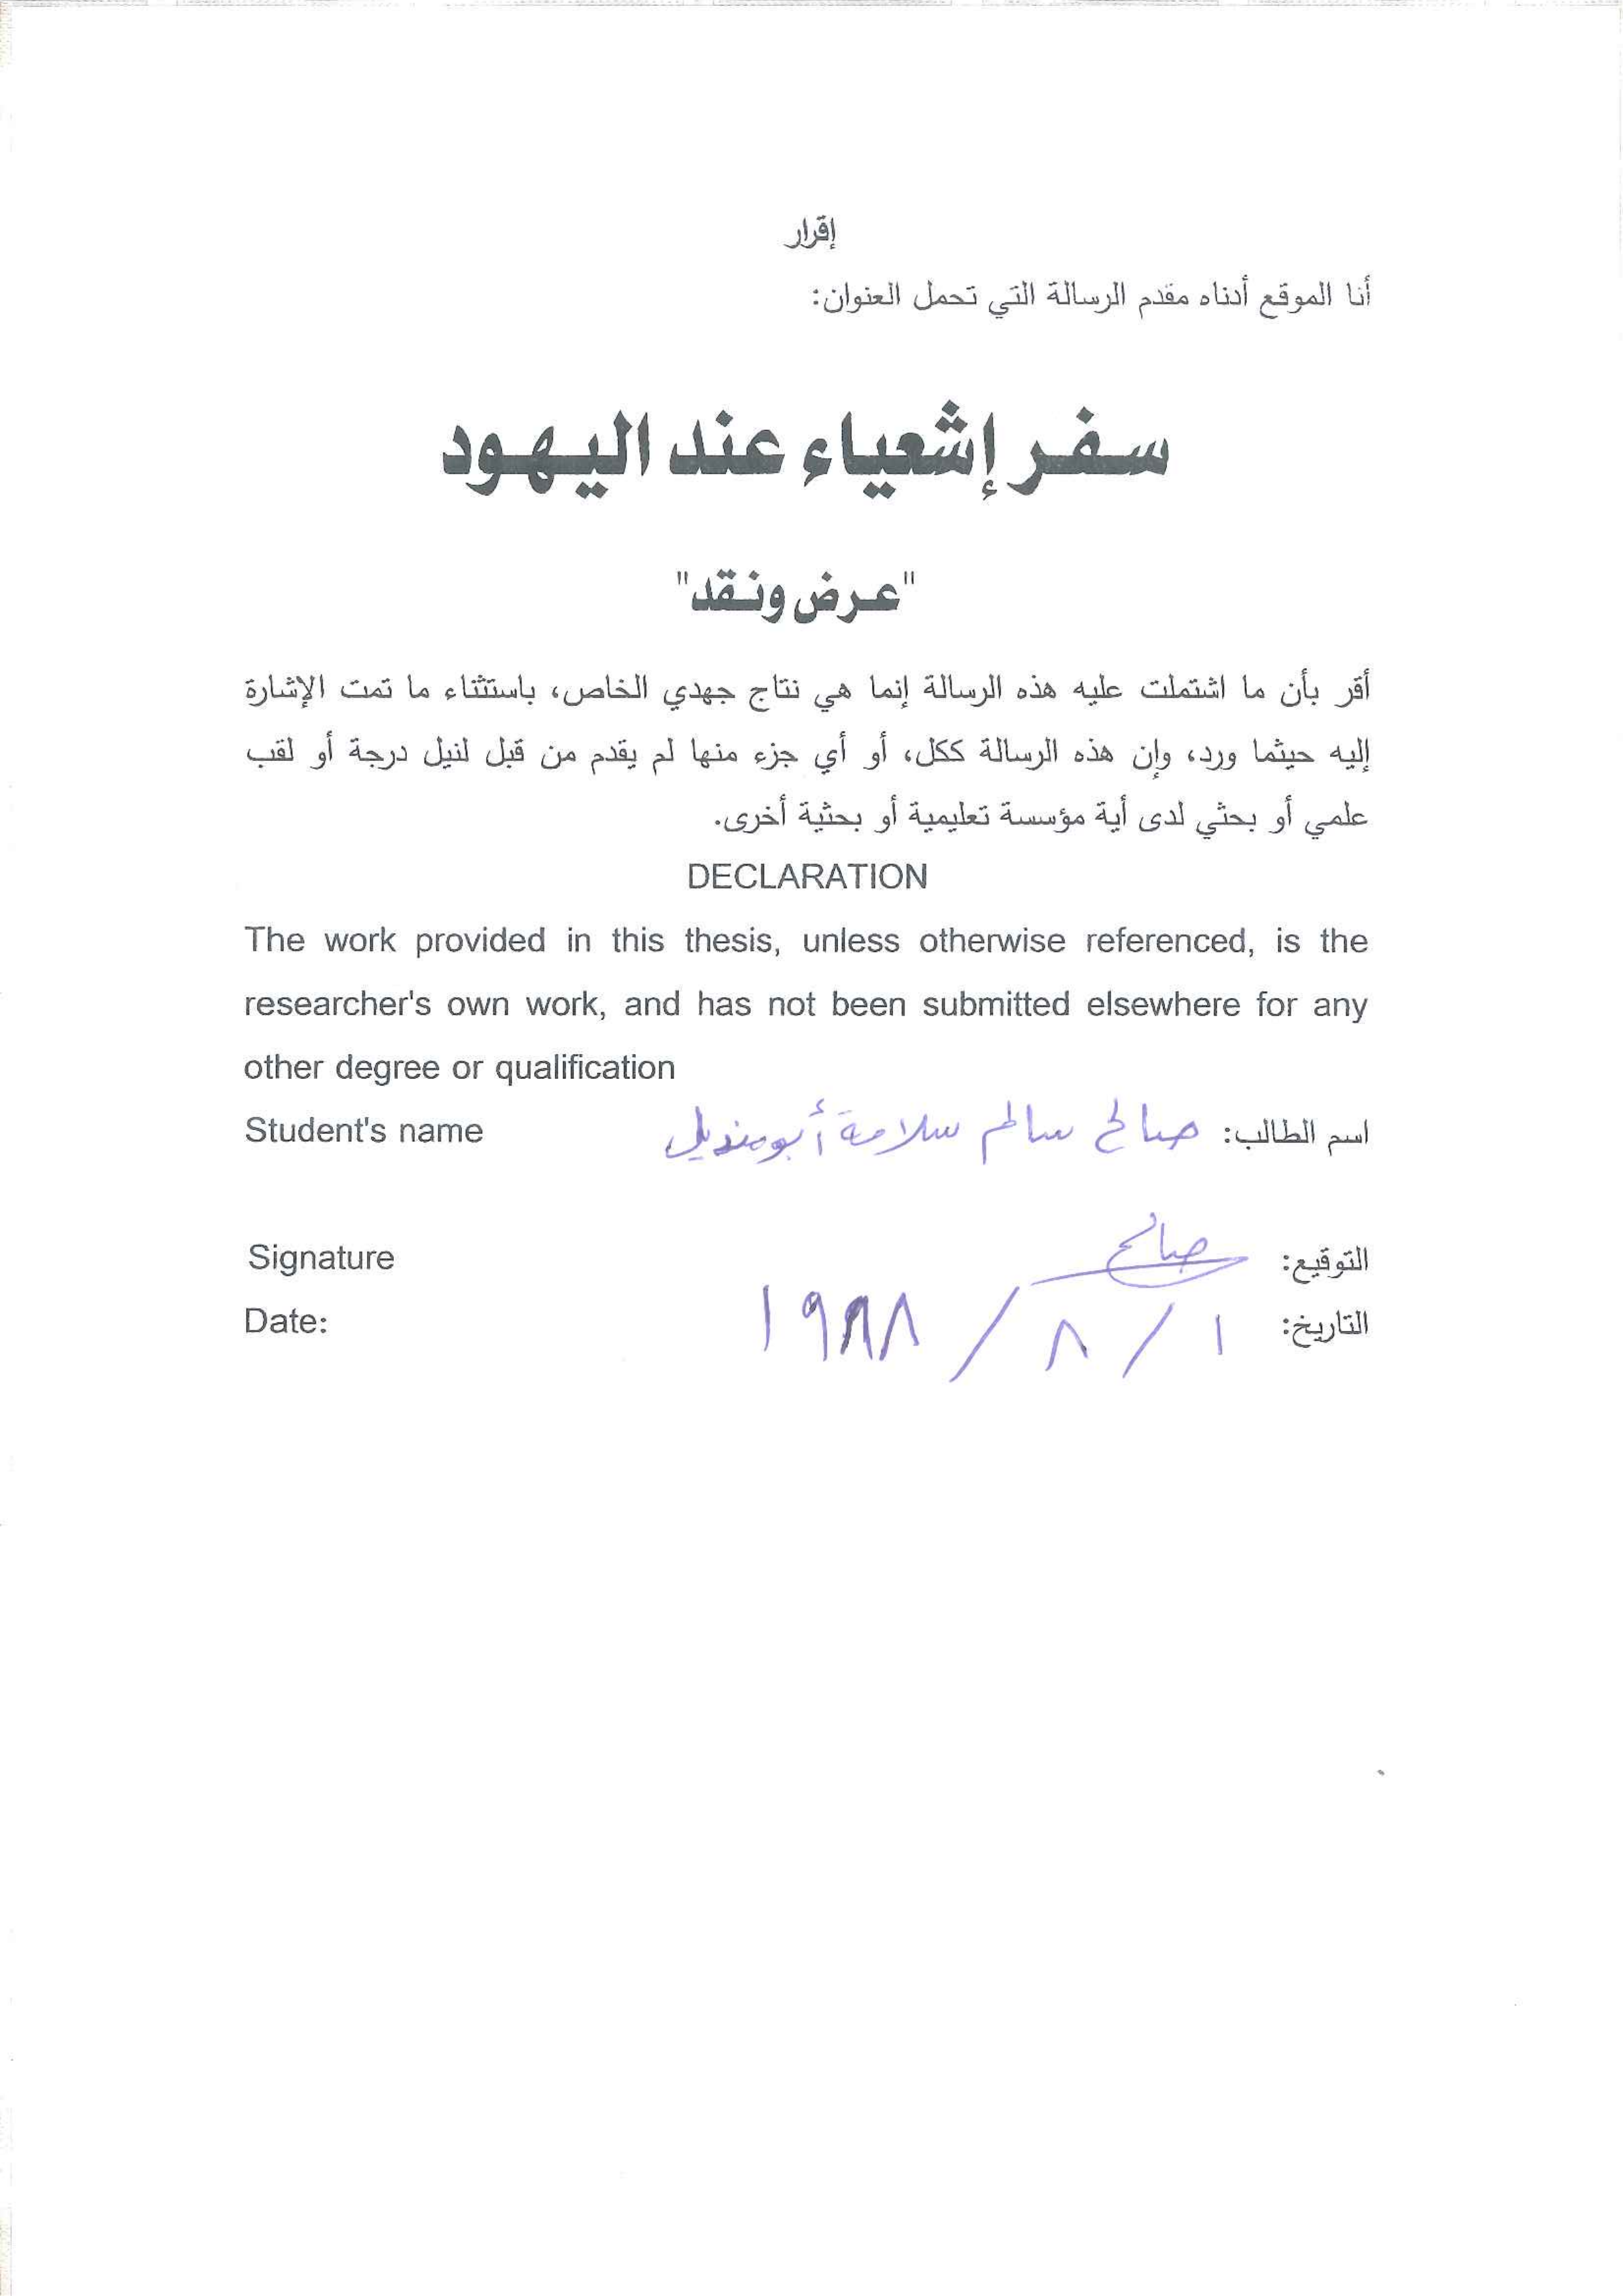 إقرار
أنا الموقع أدناه مقدم الرسالة التي تحمل العنوان:
سفر إشعياء عند اليهود
"عرض ونقد"
أقر بأن ما اشتملت عليه هذه الرسالة إنما هي نتاج جهدي الخاص، باستثناء ما تمت الإشارة
إليه حيثما ورد، وإن هذه الرسالة ككل، أو أي جزء منها لم يقدم من قبل لنيل درجة أو لقب
علمي أو بحثي لدى أية مؤسسة تعليمية أو بحثية أخرى.
DECLARATION
The work provided in this thesis, unless otherwise referenced, is the
researcher's own work, and has not been submitted elsewhere for any
other degree or qualification
Student's name اسم الطالب: صالح سالم سلامة أبومنديل
Signature التوقيع: صالح
Date: التاريخ: ١ / ٨ / ١٩٨٨